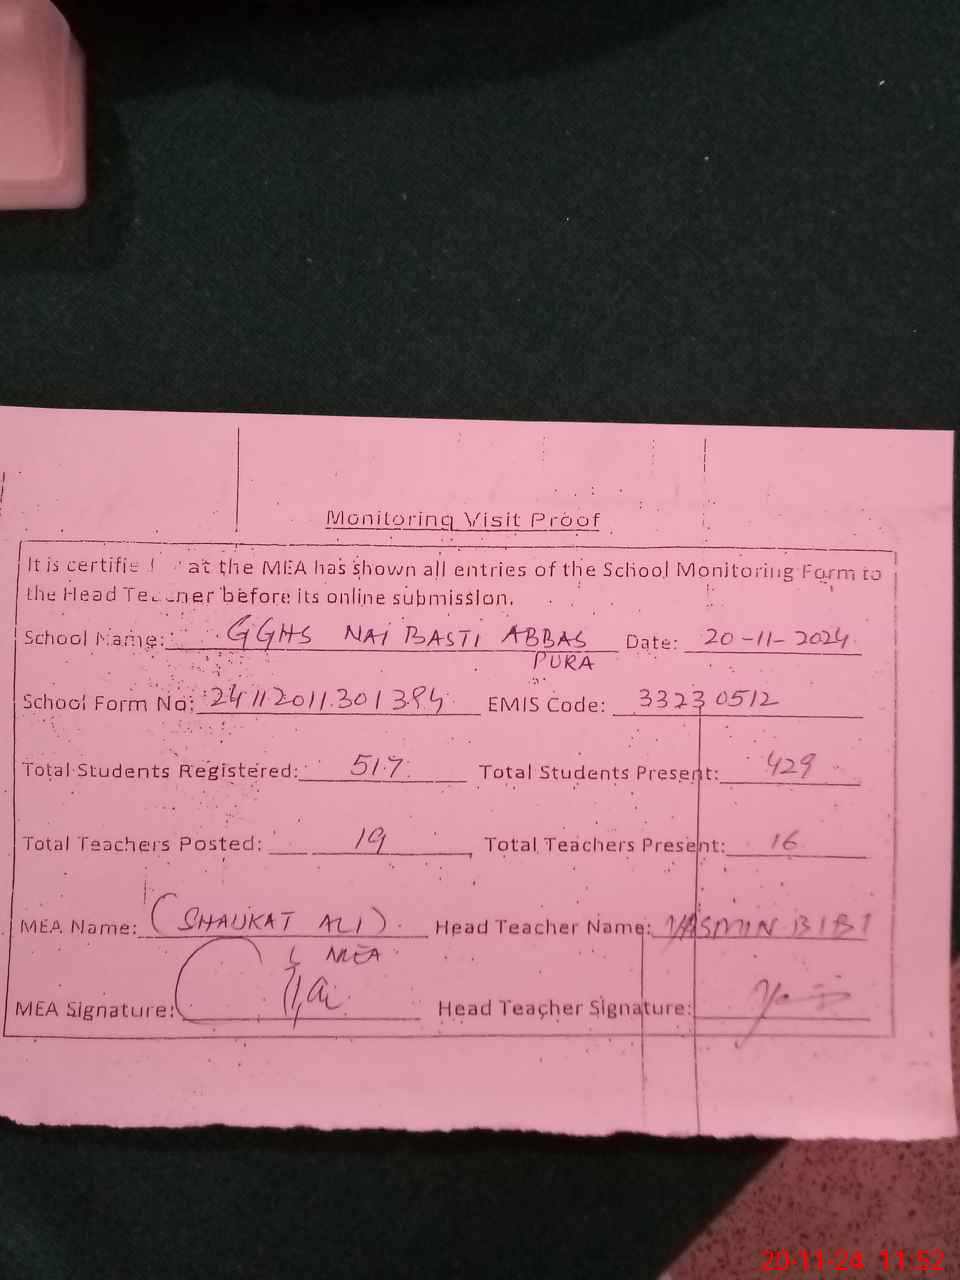 Monitoring Visit Proof
It is certified that the MEA has shown all entries of the School Monitoring Form to
the Head Teacher before its online submission.
School Name: GGHS NAI BASTI ABBAS PURA Date: 20-11-2024
School Form No: 2411201130 1384 EMIS Code: 33230512
Total Students Registered: 517 Total Students Present: 429
Total Teachers Posted: 19 Total Teachers Present: 16
MEA Name: (SHAUKAT ALI) Head Teacher Name: YASMIN BIBI
MEA
MEA Signature: Head Teacher Signature:
20-11-24 11:52